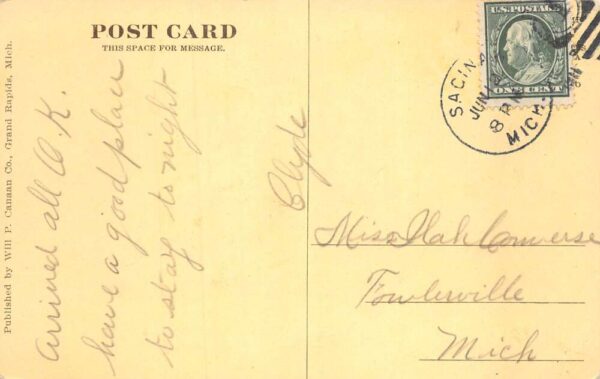 POST CARD
THIS SPACE FOR MESSAGE.
Published by Will P. Canaan Co., Grand Rapids, Mich.
Arrived all O.K.
have a good place
to stay to night
Clyde
U.S. POSTAGE
ONE CENT
SAGINAW
JUN
8 PM
MICH.
Miss Ilah Converse
Fowlerville
Mich